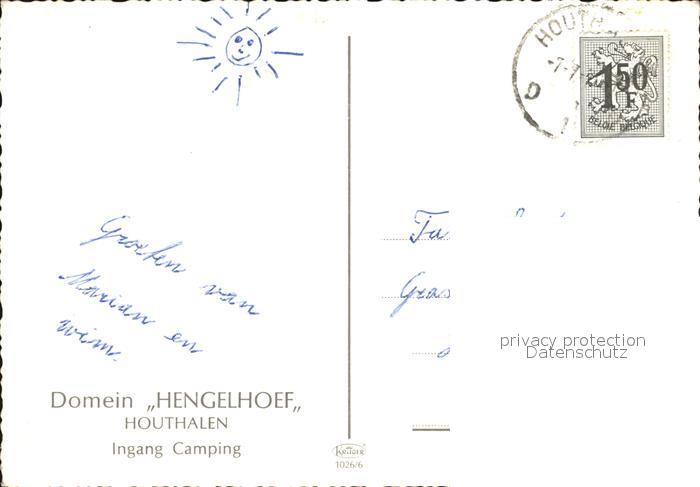 HOUTH
1 50 F
BELGIE BELGIQUE
Groeten van
Marian en
Wim.
Domein „HENGELHOEF„
HOUTHALEN
Ingang Camping
KRÜGER
1026/6
privacy protection
Datenschutz